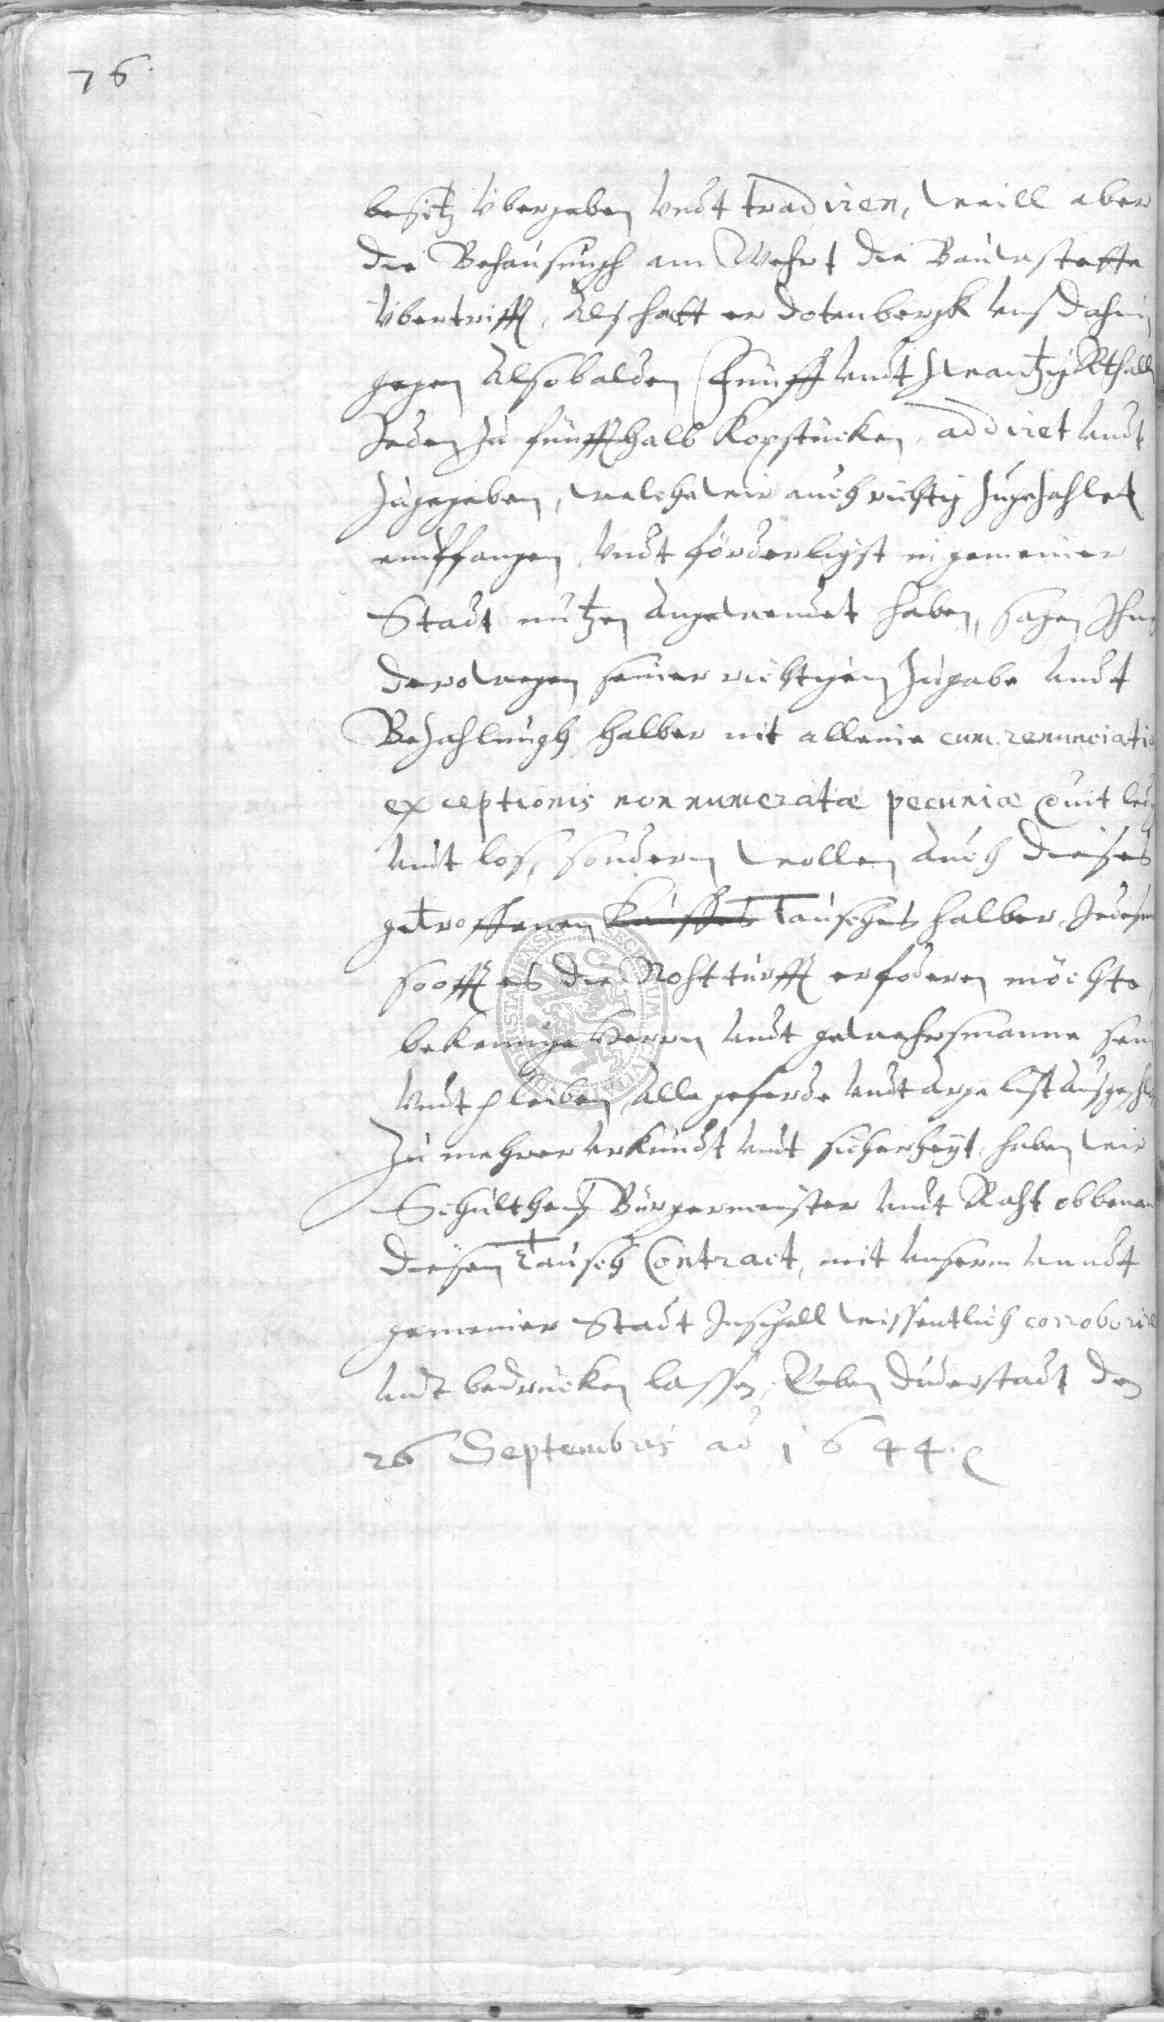 76
besitz Vbergeben Vndt tradiren, weill aber
die Behausungh am Wehrt die Bauwstette
Vbertrifft, Als hatt er Dotenbergk vns dahin
gegen Alsobalden Fünff undt zwantzig Rthall
Jeden zu fünffhalb Kopstücken addiret undt
zugegeben, welche wir auch richtig zugezahlet
empfangen Vndt förderligst in gemeiner
Stadt nutzen Angewendet haben, sagen Ihn
derowegen seiner richtigen Zugabe undt
Bezahlungh halber nit alleine cum renunciatio
exceptionis non numeratæ pecuniæ Quit ledig
undt los, sondern wollen Auch dieses
getroffenen Kauffes Tausches halber Jedesm
soofft es die Nohtturfft erfoderen möchte
bekennige Herrn undt gewehrsmanne sein
Vndt pleiben, Alle geferde undt Arge list Ausgeschl
Zu mehrer urkundt undt sicherheyt haben wir
Schultheiß Bürgermeister undt Raht obbenan
diesen Tausch Contract, mit unserm undt
gemeiner Stadt Insigell wissentlich corroborir
undt bedrucken lassen, Geben Duderstadt den
26 Septembris aō 1644